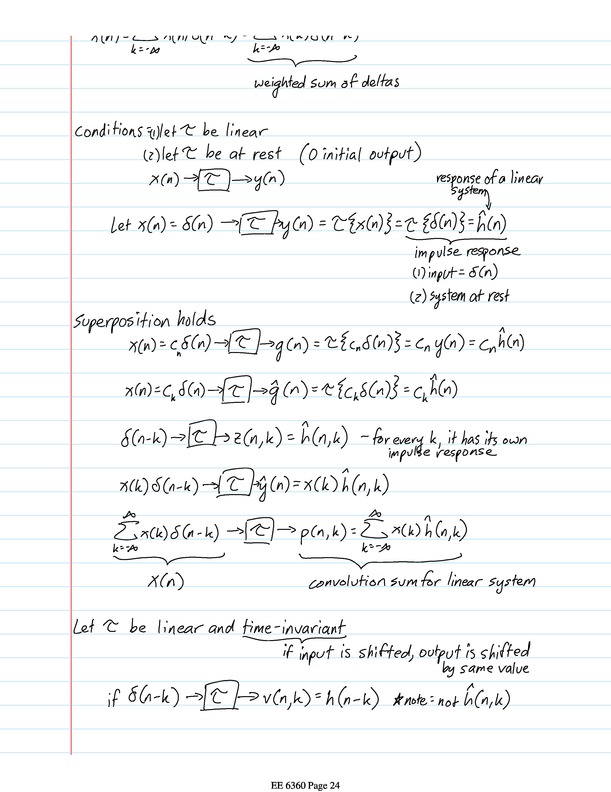 k=-∞ k=-∞
weighted sum of deltas
Conditions: (1) let τ be linear
(2) let τ be at rest (0 initial output)
x(n) → [τ] → y(n)
response of a linear
system
Let x(n) = δ(n) → [τ] → y(n) = τ{x(n)} = τ{δ(n)} = ĥ(n)
impulse response
(1) input = δ(n)
(2) system at rest
Superposition holds
x(n) = cₙδ(n) → [τ] → g(n) = τ{cₙδ(n)} = cₙ y(n) = cₙĥ(n)
x(n) = cₖ δ(n) → [τ] → ĝ(n) = τ{cₖδ(n)} = cₖĥ(n)
δ(n-k) → [τ] → z(n,k) = ĥ(n,k) - for every k, it has its own
impulse response
x(k) δ(n-k) → [τ] ŷ(n) = x(k) ĥ(n,k)
∞ ∞
Σ x(k) δ(n-k) → [τ] → p(n,k) = Σ x(k) ĥ(n,k)
k=-∞ k=-∞
x(n) convolution sum for linear system
Let τ be linear and time-invariant
if input is shifted, output is shifted
by same value
if δ(n-k) → [τ] → v(n,k) = h(n-k) *note: not ĥ(n,k)
EE 6360 Page 24